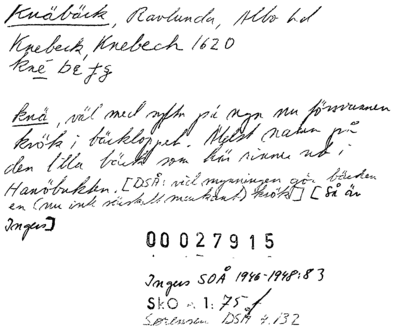 Knäbäck, Ravlunda, Albo hd
Knebeck, Knebech 1620
knä, väl med syftn på ngn nu försvunnen
krök i bäckloppet. Äldst namn på
den lilla bäck som här rinner ut i
Hanöbukten. [DSÅ: vid mynningen gör bäcken
en (nu ink särskilt markant) krök] [Så är
Ingers]
00027915
Ingers SOÅ 1946-1948:83
SkO 1: 75 f
Sørensen DSÅ 4.132